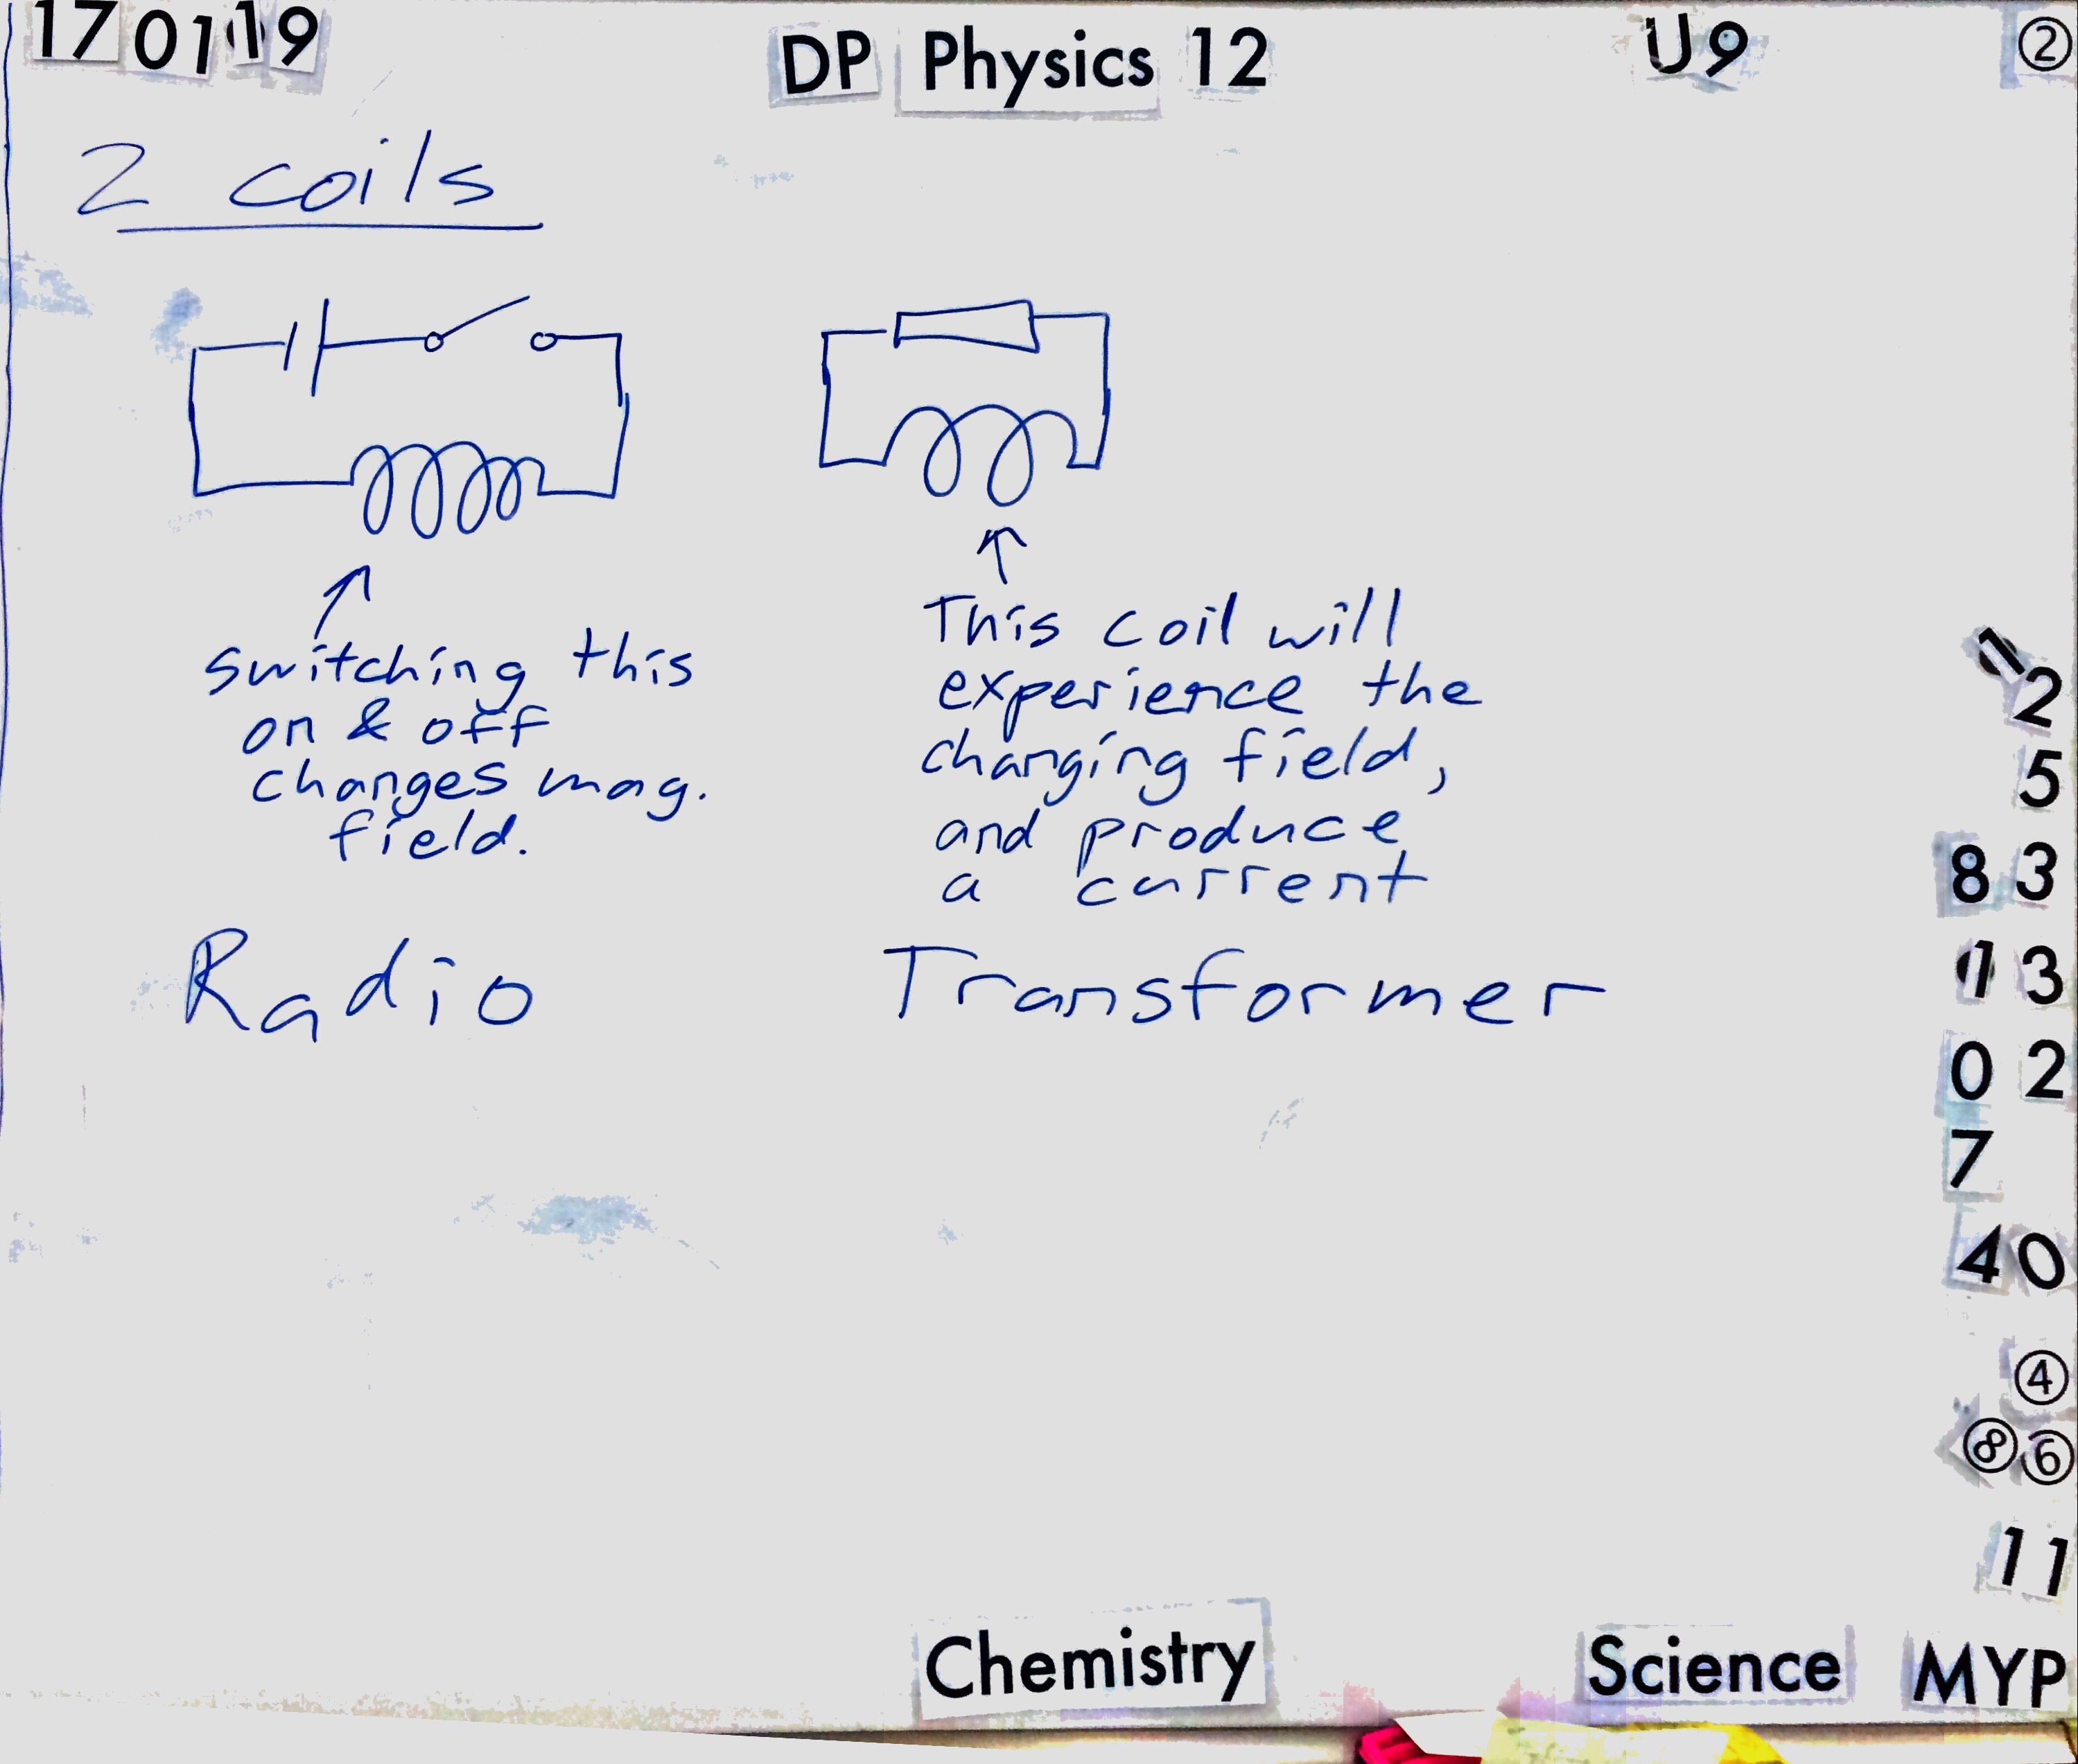 170119 DP Physics 12 U9 ②
2 coils
switching this
on & off
changes mag.
field.
This coil will
experience the
changing field,
and produce
a current
Radio Transformer
1 2
5
8 3
1 3
0 2
7
4 0
④
⑧ ⑥
1 1
Chemistry Science MYP